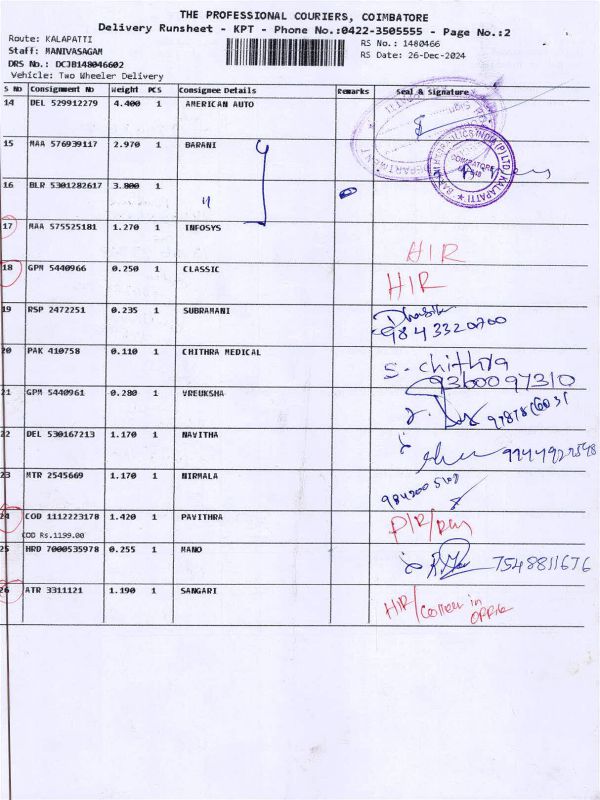 THE PROFESSIONAL COURIERS, COIMBATORE
Delivery Runsheet - KPT - Phone No.:0422-3505555 - Page No.:2
Route: KALAPATTI
RS No.: 1480466
Staff: MANIVASAGAM
RS Date: 26-Dec-2024
DRS No.: DCJB148046602
Vehicle: Two Wheeler Delivery
S No Consignment No Weight PCS Consignee Details Remarks Seal & Signature
14 DEL 529912279 4.400 1 AMERICAN AUTO
15 MAA 576939117 2.970 1 BARANI
COIMBATORE
16 BLR 5301282617 3.800 1
17 MAA 575525181 1.270 1 INFOSYS HIR
18 GPM 5440966 0.250 1 CLASSIC HIR
19 RSP 2472251 0.235 1 SUBRAMANI
9843320700
20 PAK 410758 0.110 1 CHITHRA MEDICAL S. chithra
9360097310
21 GPM 5440961 0.280 1 VREUKSHA
22 DEL 530167213 1.170 1 NAVITHA
23 MTR 2545669 1.170 1 NIRMALA
24 COD 1112223178 1.420 1 PAVITHRA
COD Rs.1199.00
25 HRD 7000535978 0.255 1 MANO 7548811676
26 ATR 3311121 1.190 1 SANGARI HIR/
in